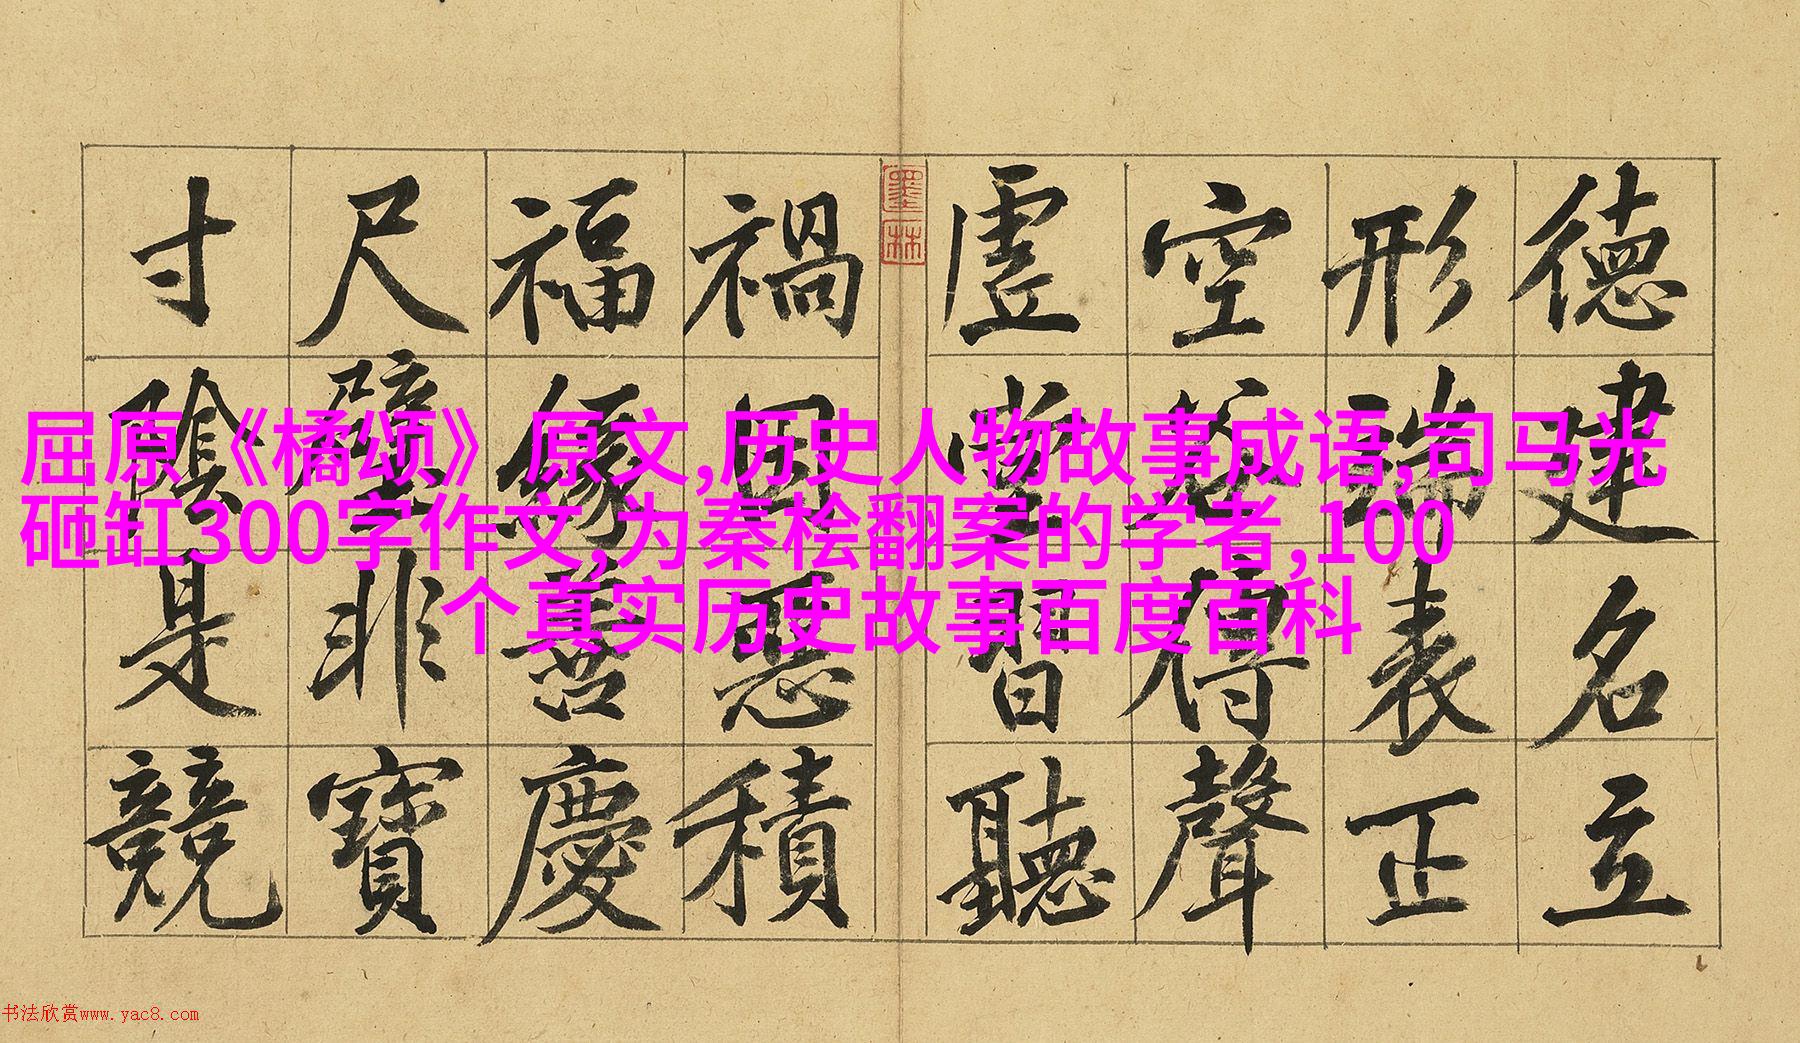 德建名立
形端表正
空谷傳聲
虛堂習聽
禍因惡積
福緣善慶
尺璧非寶
寸陰是競
墨林
屈原《橘颂》原文,历史人物故事成语,司马光
砸缸300字作文,为秦桧翻案的学者,100
个真实历史故事百度百科
书法欣赏www.yac8.com